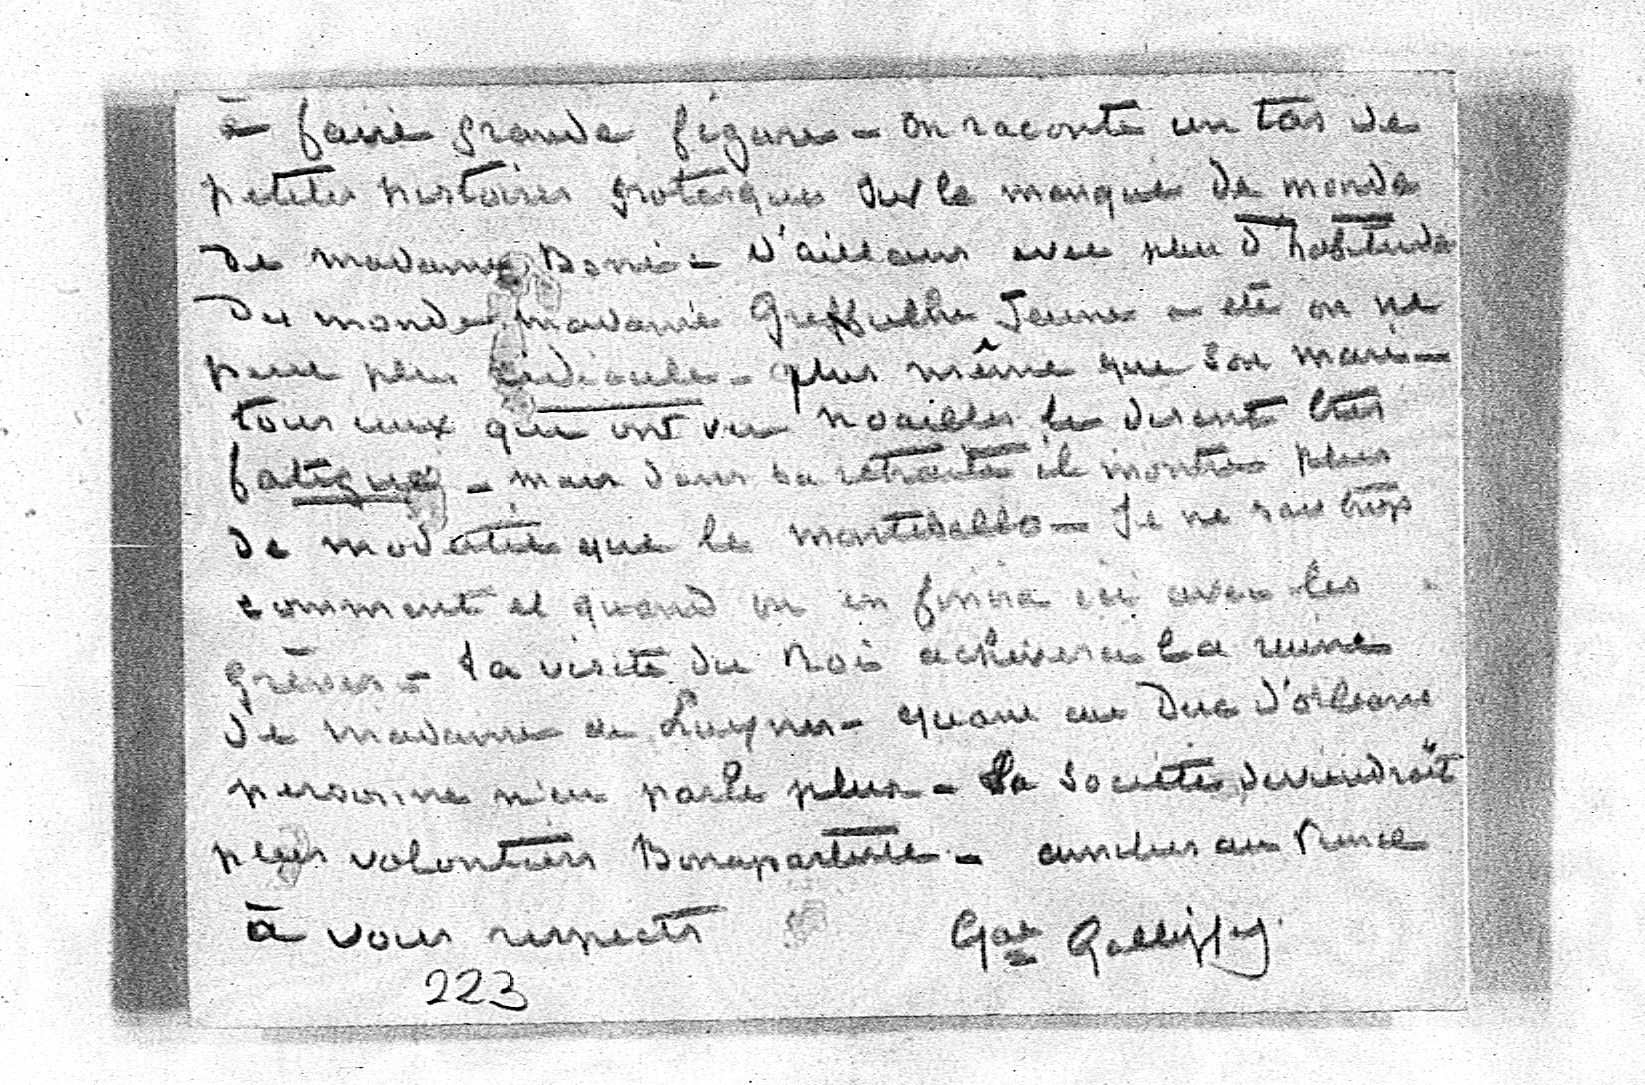 à faire grande figure - on raconte un tas de
petites histoires grotesques sur le manque de monde
de madame Boni - d'ailleurs avec peu d'habitude
du monde madame Greffulhe Jeune a été on ne
peut plus ridicule - plus même que son mari -
tous ceux qui ont vu Noailles le disent très
fatigué - mais dans sa retraite il montre plus
de modestie que le Montebello - Je ne sais trop
comment et quand on en finira ici avec les
grèves - La visite du Roi achèvera la ruine
de madame de Luynes - quant au Duc d'orléans
personne n'en parle plus - la société deviendrait
plus volontiers Bonapartiste - au Prince
à vous respects Gal Galliffet
223